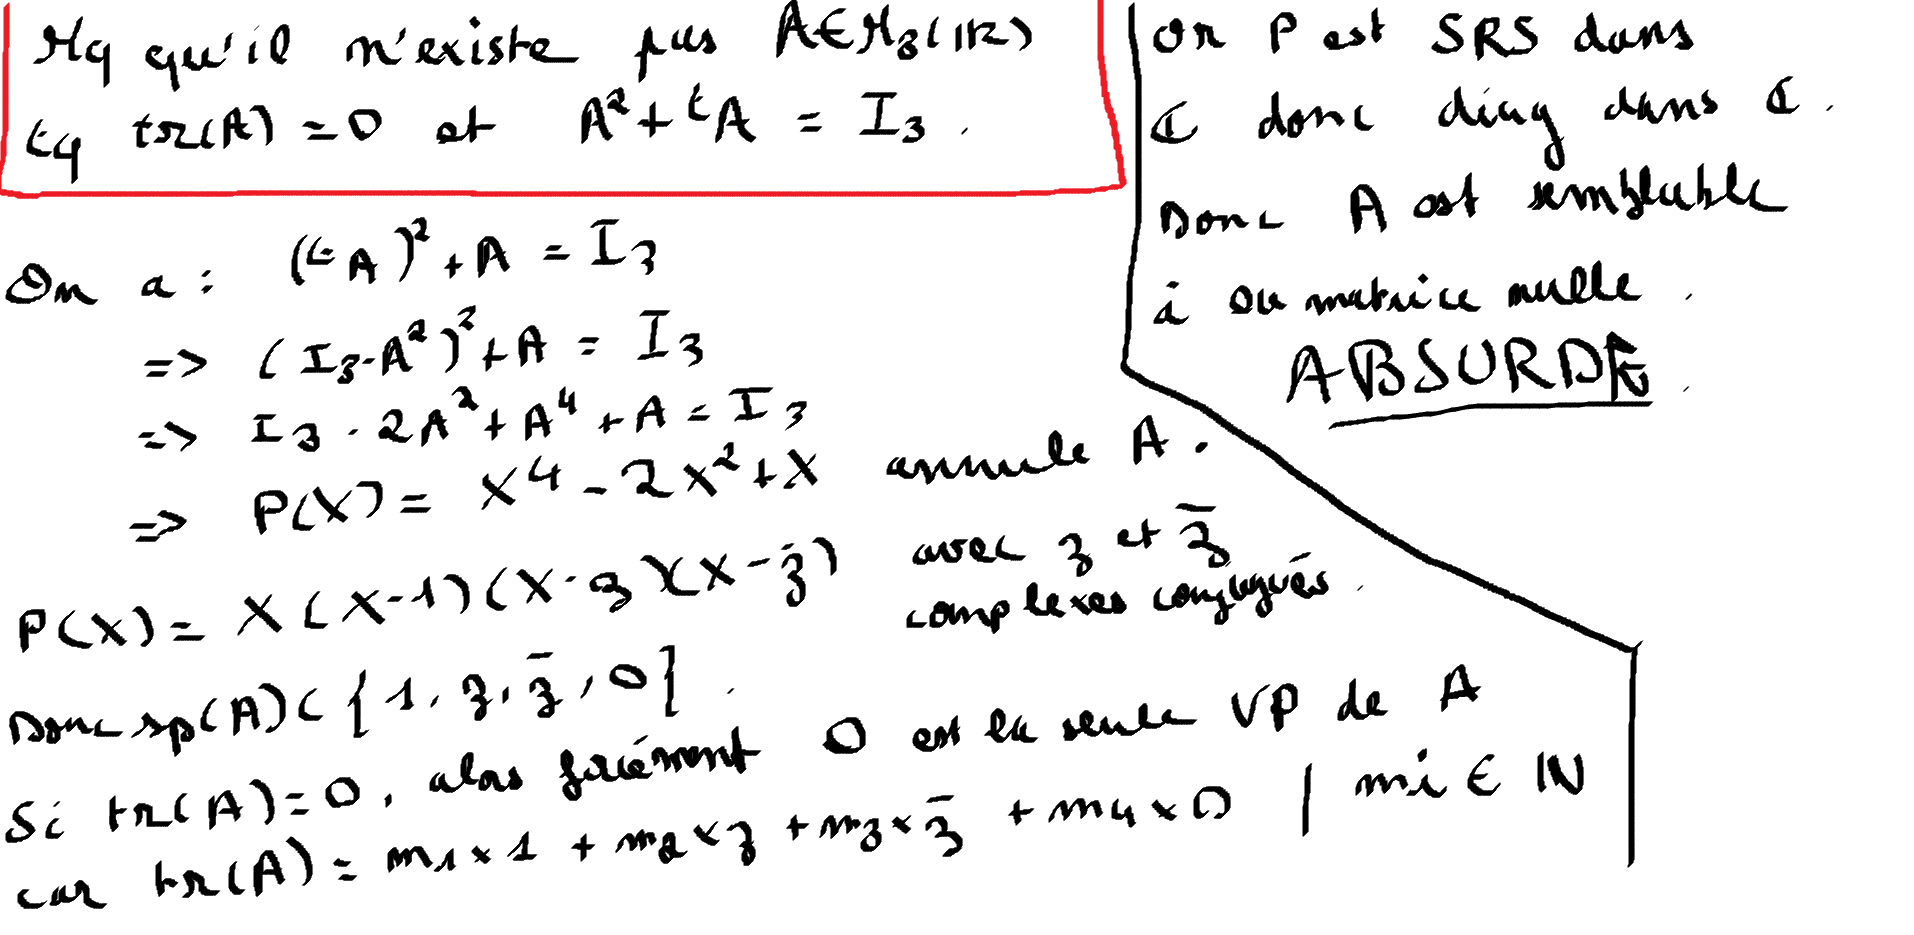 Mq qu'il n'existe pas A∈M₃(ℝ)
tq tr(A) = 0 et A² + ᵗA = I₃.
On a : (ᵗA)² + A = I₃
=> (I₃-A²)² + A = I₃
=> I₃ - 2A² + A⁴ + A = I₃
=> P(X) = X⁴ - 2X² + X annule A.
P(X) = X(X-1)(X-z)(X-z̄) avec z et z̄
complexes conjugués.
Donc sp(A) ⊂ {1, z, z̄, 0}.
Si tr(A)=0, alors forcément 0 est la seule VP de A
car tr(A) = m₁×1 + m₂×z + m₃×z̄ + m₄×0 | mi ∈ ℕ
Or P est SRS dans
ℂ donc diag dans ℂ.
Donc A est semblable
à ou matrice nulle.
ABSURDE.